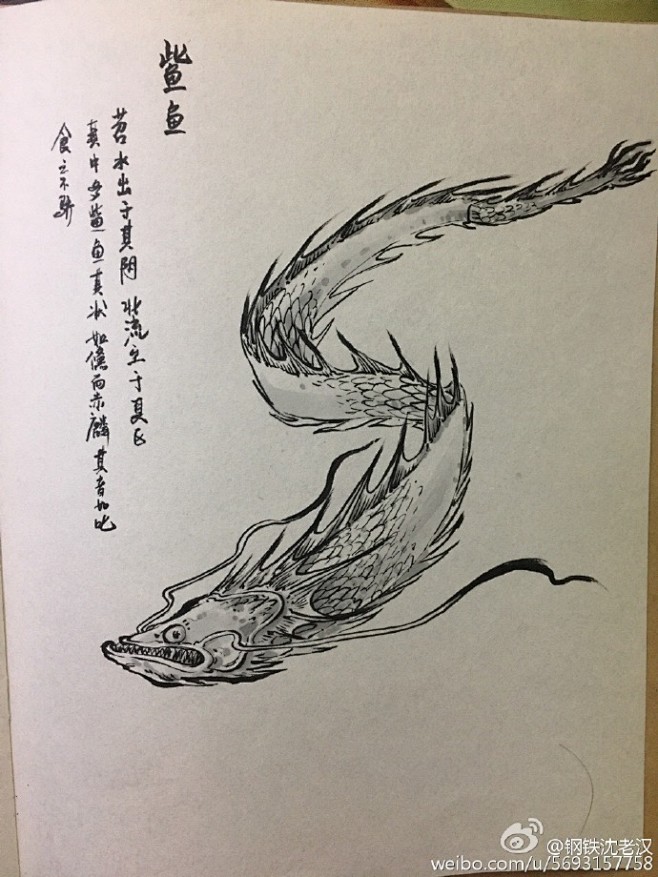 鮆鱼
苕水出于其阴 北流至于具区
其中多鮆鱼其状如儵而赤麟其音如叱
食之不骄
@钢铁沈老汉
weibo.com/u/5693157758